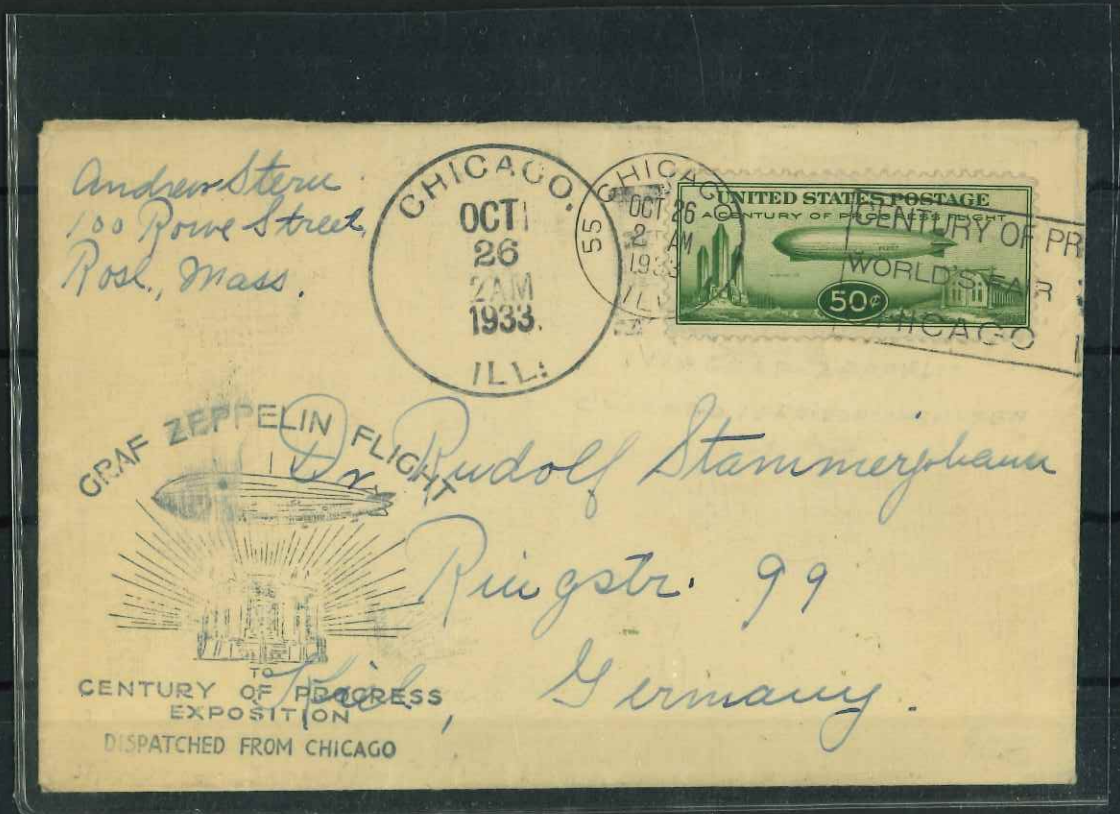 Andrew Stern
100 Rowe Street,
Rosl., Mass.
CHICAGO.
OCT
26
2AM
1933.
ILL.
55 CHICAGO
OCT 26
2 AM
1933
ILL
UNITED STATES POSTAGE
A CENTURY OF PROGRESS FLIGHT
50¢
CENTURY OF PR
WORLD'S FAIR
CHICAGO
GRAF ZEPPELIN FLIGHT
TO
CENTURY OF PROGRESS
EXPOSITION
DISPATCHED FROM CHICAGO
Dr Rudolf
Ringstr. 99
Kiel, Germany.